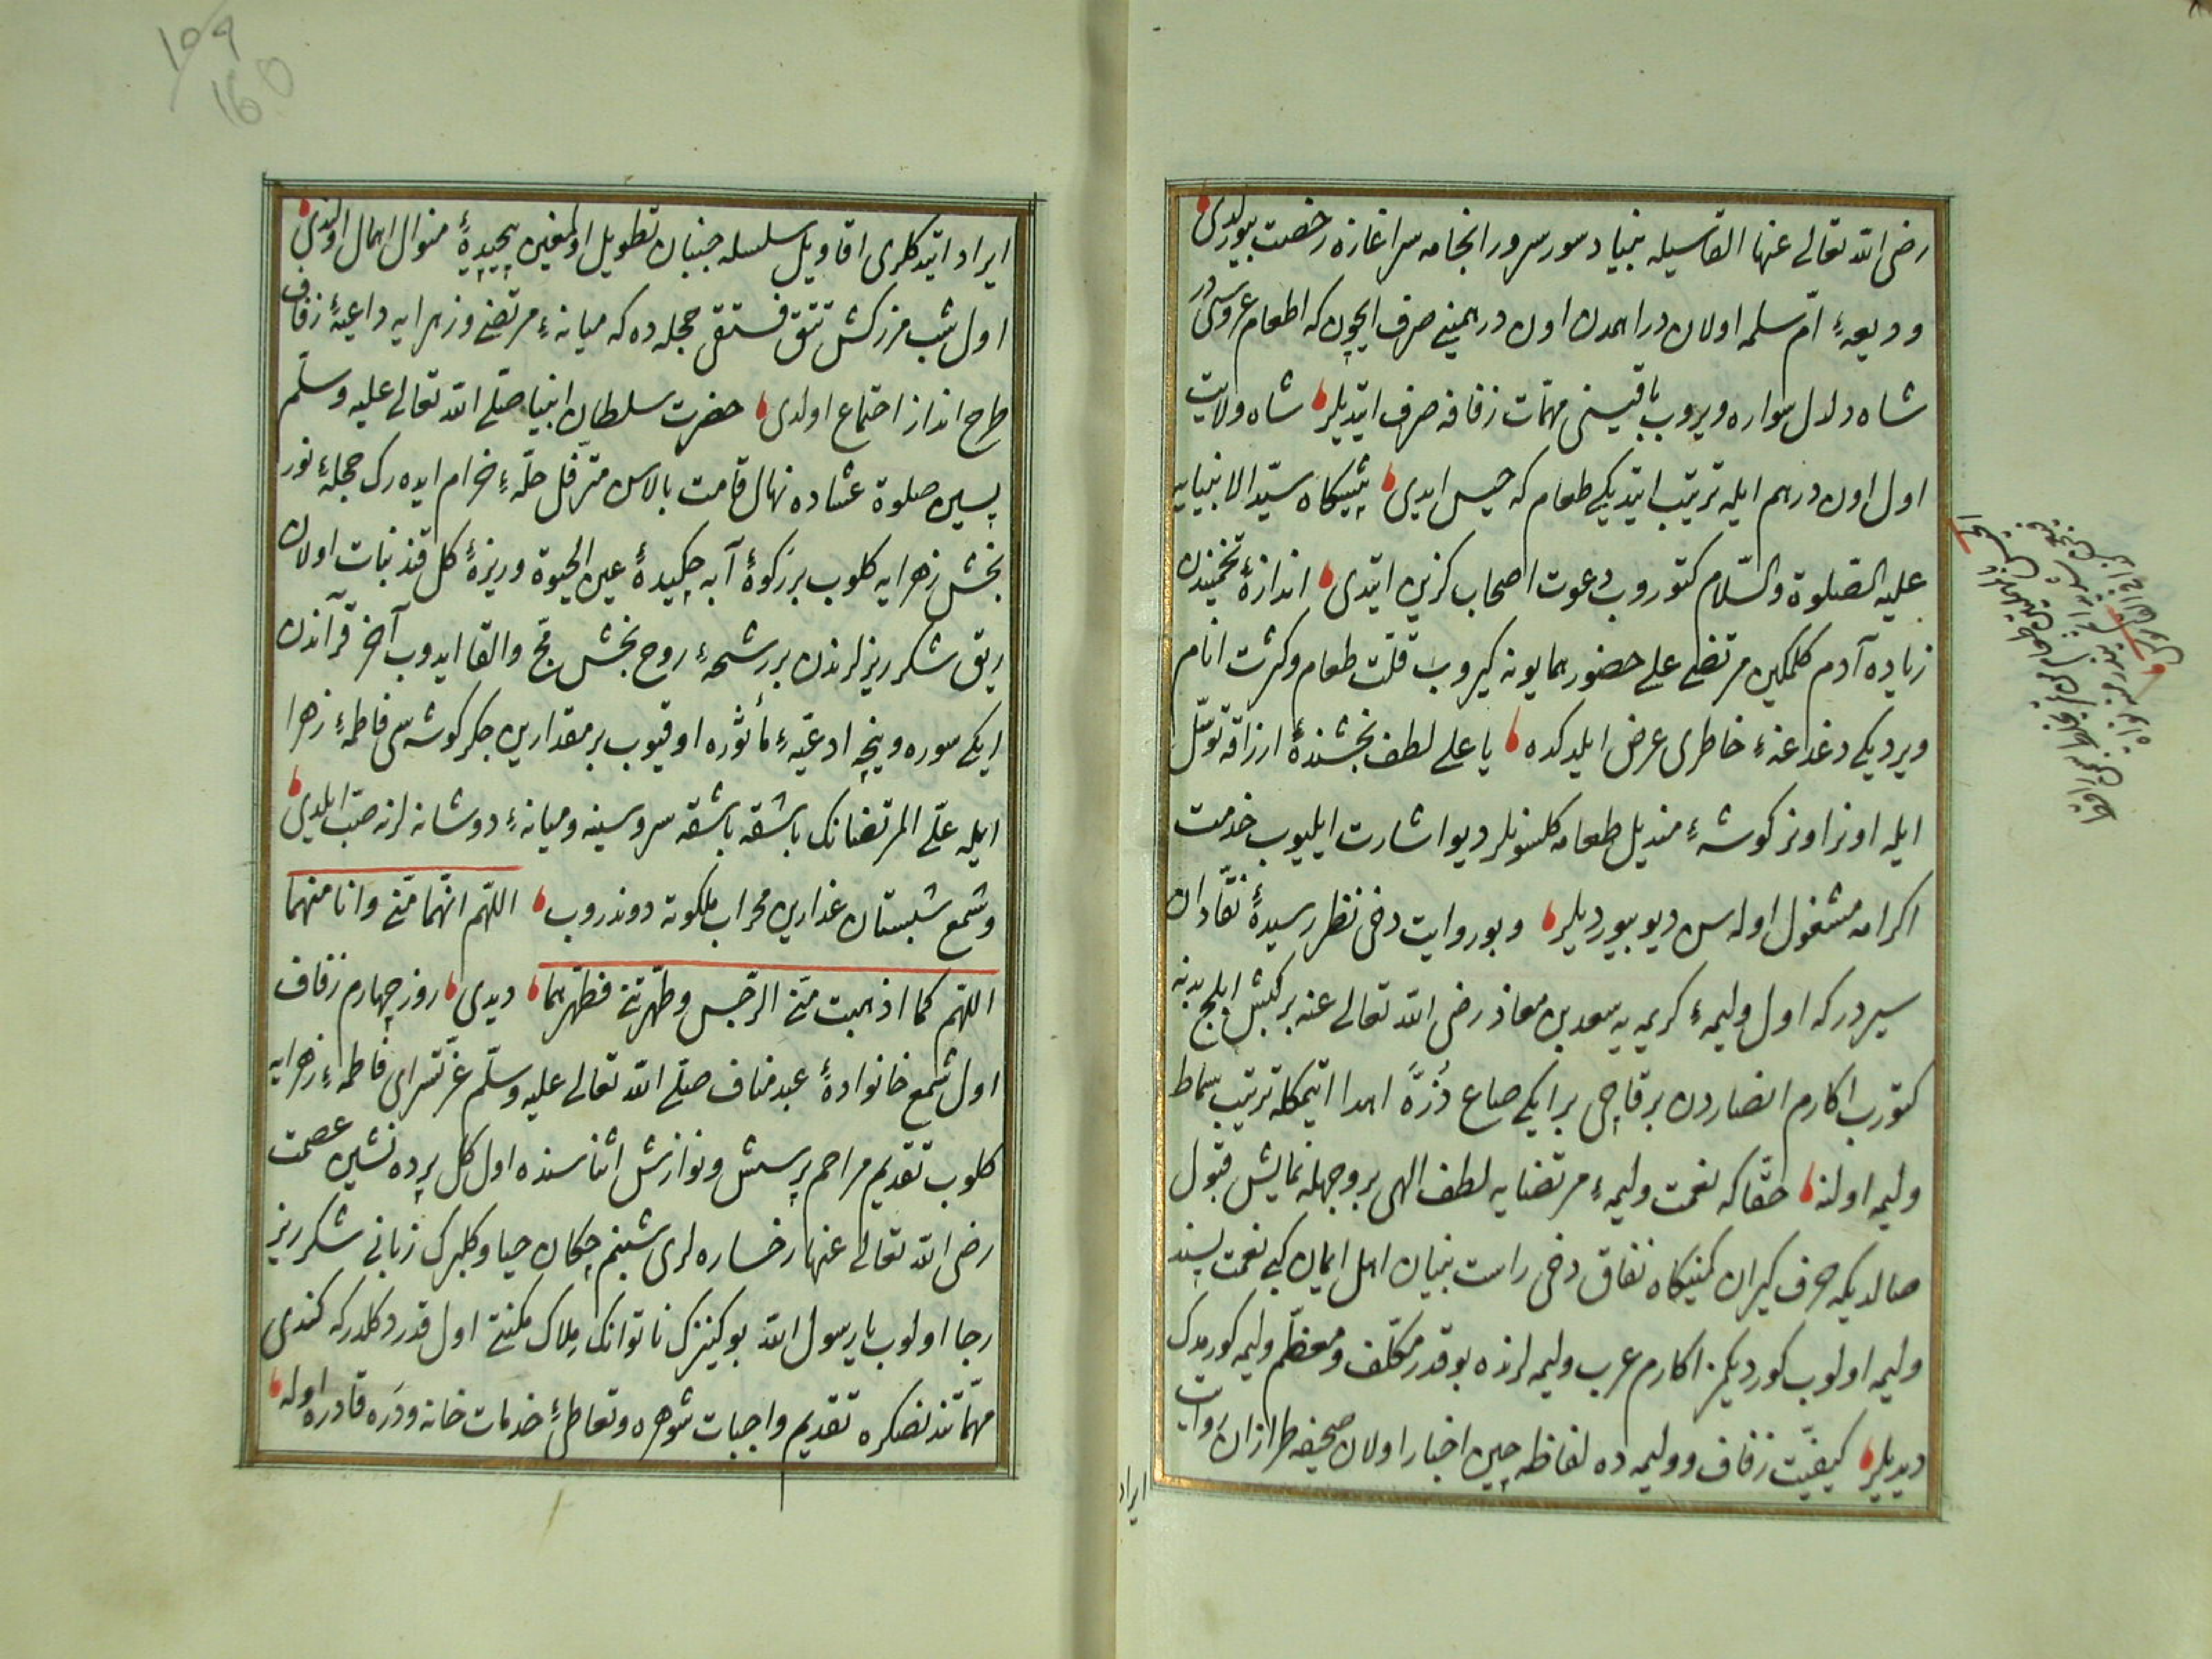 رضی الله تعالی عنها القاسیله بنیاد سور سرور انجامه سراغازه رخصت بیورلدی
و ودیعهٔ امّ سلمه اولان دراهمدن اون درهمینی صرف ایچون که اطعام عروسی در
شاه دلدل سواره ویروب باقیسنی مهمّات زفافه صرف ایتدیلر شاه ولایت
اول اون درهم ایله ترتیب ایتدیکی طعام که حیس ایدی پیشکاه سیّد الانبیایه
علیه الصّلوة والسّلام کتوروب دعوت اصحاب کزین ایتدی اندازهٔ تخمیندن
زیاده آدم کلمکین مرتضی علی حضور همایونه کیروب قلّت طعام وکثرت انام
ویردیکی دغدغهٔ خاطری عرض ایلدکده یا علی لطف بخشندهٔ ارزاقه توسّل
ایله اونر اونر کوشهٔ مندیل طعامه کلسونلر دیو اشارت ایلیوب خدمت
اکرامه مشغول اوله سن دیو بیوردیلر وبو روایت دخی نظر رسیدهٔ نقّادان
سیر در که اول ولیمهٔ کریمه یه سعد بن معاذ رضی الله تعالی عنه بر کبش املح بدنه
کتورب اکارم انصاردن بر قاچی بر ایکی صاع ذرّة اهدا ایتمکله ترتیب سماط
ولیمه اولنه حقّا که نعمت ولیمهٔ مرتضایه لطف الهی بر وجهله نمایش قبول
صالدیکه حرف کیران کمینکاه نفاق دخی راست بنیان اهل ایمان کبی نعمت پسند
ولیمه اولوب کوردیکمز اکارم عرب ولیمه لرنده بو قدر مکلّف ومعظّم ولیمه کورمدک
دیدیلر کیفیّت زفاف وولیمه ده لفاظه چین اخبار اولان صحیفه طرازان روایات
ایراد
ایراد ایتدکلری اقاویل سلسله جنبان تطویل اولمغین پیچیدهٔ منوال اهمال اولندی
اول شب مزرکش تتق فستقی حجله ده که میانهٔ مرتضی وزهرایه داعیهٔ زفاف
طرح انداز اجتماع اولدی حضرت سلطان انبیا صلّی الله تعالی علیه وسلّم
پسین صلوة عشاده نهال قامت بالاسن مترفّل حلّهٔ خرام ایده رک حجلهٔ نور
بخش زهرایه کلوب بر رکوهٔ آبه چکیدهٔ عین الحیوة وریزهٔ کل قند نبات اولان
ریق شکر ریزلرندن بر رشحهٔ روح بخش مجّ والقا ایدوب آخر قرآندن
ایکی سوره ونیچه ادعیهٔ مأثوره اوقیوب بر مقدارین جکر کوشه سی فاطمهٔ زهرا
ایله علّی المرتضانک باشقه باشقه سر وسینه ومیانهٔ دوشانه لرنه صبّ ایلدی
وشمع شبستان عذارین محراب ملکوته دوندروب اللّهم انّهما منّی وانا منهما
اللّهم کما اذهبت منّی الرّجس وطهّرتنی فطهّرهما دیدی روز چهارم زفاف
اول شمع خانوادهٔ عبد مناف صلّی الله تعالی علیه وسلّم عزّتسرای فاطمهٔ زهرایه
کلوب تقدیم مراحم پرسش ونوازش اثناسنده اول کل پرده نشین عصمت
رضی الله تعالی عنها رخساره لری شبنم چکان حیا وکلبرک زبانی شکر ریز
رجا اولوب یا رسول الله بو کنیزک ناتوانک ملاک مکنتی اول قدر دکلدر که کندی
مهمّاتندنصکره تقدیم واجبات شوهره وتعاطئ خدمات خانه ودره قادره اوله